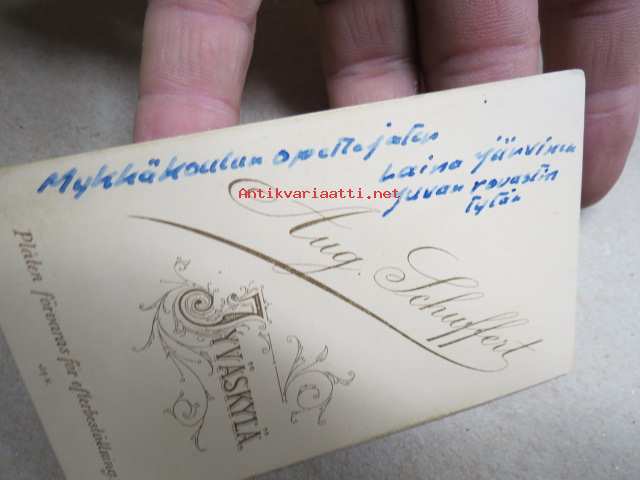 Mykkäkoulun opettajatar
Laina Järvinen
Juvan rovastin
tytär
Antikvariaatti.net
Aug. Schuffert
JYVÄSKYLÄ.
Plåten förvaras för efterbeställning.
Antikvariaatti.net